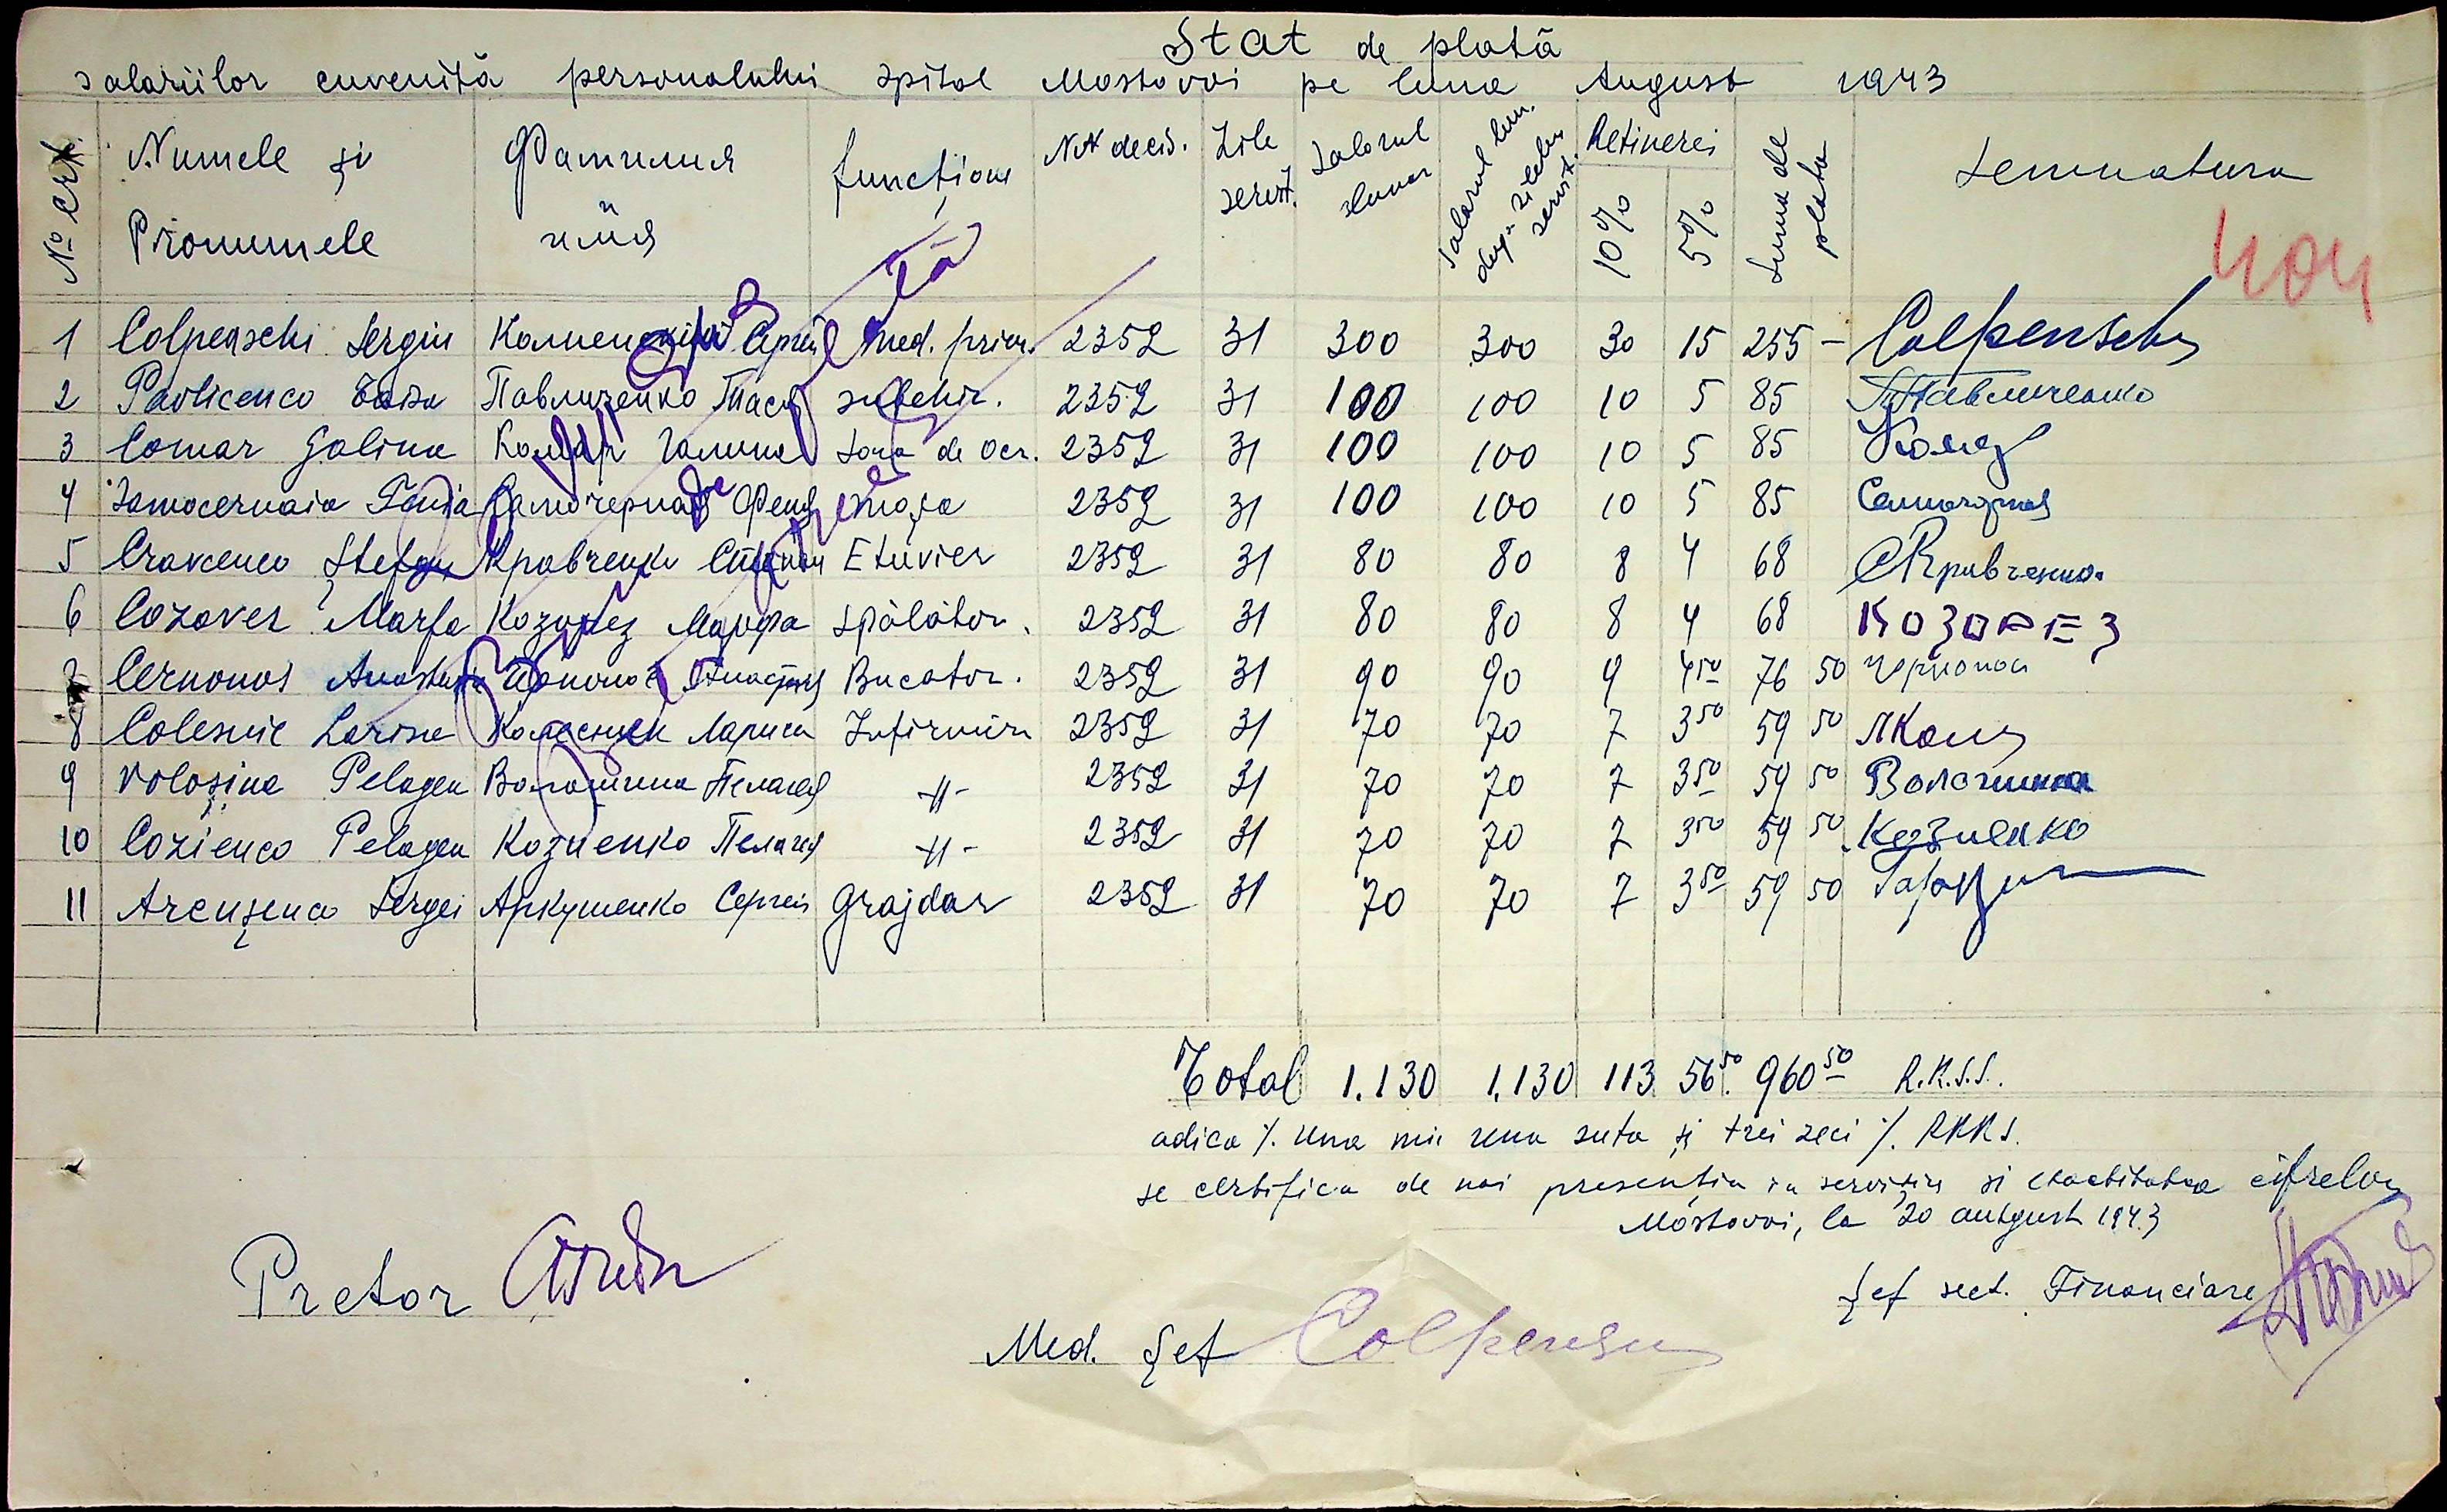 Stat de plată
salariilor cuvenită personalului spital Mostovoi pe luna August 1943
No crt. Numele și Pronumele Фамилия имя funcțion No decis. Zile servit. Salarul lunar Salarul lun. dupa zilelor servit. Retinerei 10% 5% Suma de plata Semnatura
404
1 Colpenschi Sergiu Сергей Med. prim. 2352 31 300 300 30 15 255 – Colpenschy
2 Pavlicenco Taisa Павличенко Тася subchir. 2352 31 100 100 10 5 85 Павличенко
3 Comar Galina Комар Галина Sora de Ocr. 2352 31 100 100 10 5 85 Комар
4 Samocernaia Fenia Самочерная Феня moașa 2352 31 100 100 10 5 85
5 Cravcenco Ștefan Кравченко Степан Etuvier 2352 31 80 80 8 4 68 СКравченко.
6 Cozorez Marfa Козорез Марфа Spălător. 2352 31 80 80 8 4 68 КОЗОРЕЗ
7 Cernonos Anastasia Чорнонос Анастасия Bucator. 2352 31 90 90 9 4 50 76 50 Чернонос
8 Colesnic Larisa Колесник Лариса Infirmiera 2352 31 70 70 7 3 50 59 50 ЛКолес
9 Voloșina Pelagea Волошина Пелагея -"- 2352 31 70 70 7 3 50 59 50 Волошина
10 Cozienco Pelagea Козиенко Пелагея -"- 2352 31 70 70 7 3 50 59 50 Козиенко
11 Arcușenco Sergei Аркушенко Сергей Grajdar 2352 31 70 70 7 3 50 59 50
Total 1.130 1.130 113 56 50 960 50 R.K.S.S.
adica %. Una mie una suta și trei zeci %. RKKS.
se certifica de noi presentia in servițiu si exactitatea cifrelor
Mostovoi, la 20 autgust 1943
Pretor
Șef sect. Financiare
Med. Șef Colpensch